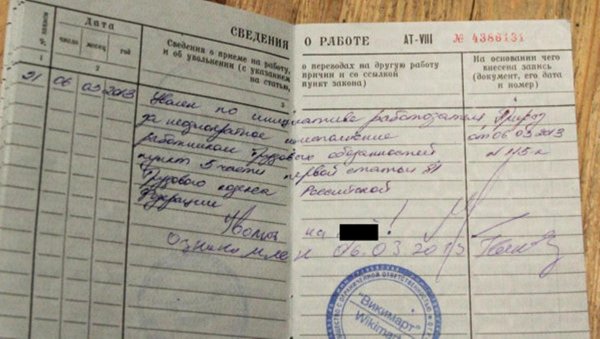 СВЕДЕНИЯ О РАБОТЕ АТ-VIII № 4386131
№ записи
Дата
число месяц год
Сведения о приеме на работу, о переводах на другую работу
и об увольнении (с указанием причин и со ссылкой
на статью, пункт закона)
На основании чего
внесена запись
(документ, его дата
и номер)
1 2 3
21 06 03 2013 Уволен по инициативе работодателя Приказ
за неоднократное неисполнение от 06 03 2013
работником трудовых обязанностей
пункт 5 части первой статьи 81
Трудового кодекса Российской
Федерации
на !
06.03.2013
"Викимарт"
Wikimart